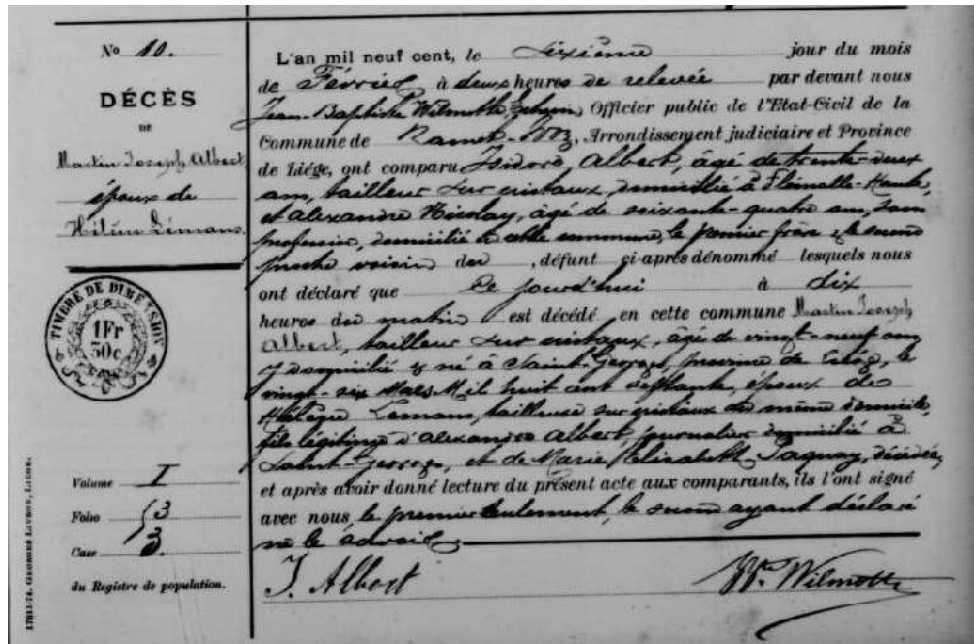 No 10.
DÉCÈS
DE
Martin Joseph Albert
époux de
Lémans.
TIMBRE DE DIMENSION
1Fr
30c
Volume I
Folio 53
Case 3.
du Registre de population.
L'an mil neuf cent, le sixième jour du mois
de Février à deux heures de relevée par devant nous
Jean-Baptiste Wilmotte Officier public de l'Etat-Civil de la
Commune de Ramet, Arrondissement judiciaire et Province
de Liége, ont comparu Isidore Albert, âgé de trente-deux
ans, tailleur sur cristaux, domicilié à Flémalle-Haute,
et Alexandre Nicolay, âgé de soixante-quatre ans, sans
profession, domicilié à cette commune, le premier frère et le second
proche voisin du, défunt ci-après dénommé lesquels nous
ont déclaré que ce jourd'hui à dix
heures du matin est décédé en cette commune Martin Joseph
Albert, tailleur sur cristaux, âgé de vingt-neuf ans
domicilié & né à Saint-Georges, province de Liége, le
vingt-six Mars Mil huit cent septante, époux de
Hélène Lémans, tailleuse sur cristaux du même domicile,
fils légitime d'Alexandre Albert, journalier domicilié à
Saint-Georges, et de Marie Elisabeth Paquay, décédée,
et après avoir donné lecture du présent acte aux comparants, ils l'ont signé
avec nous, le premier seulement, le second ayant déclaré
ne le savoir.
J. Albert
Wilmotte